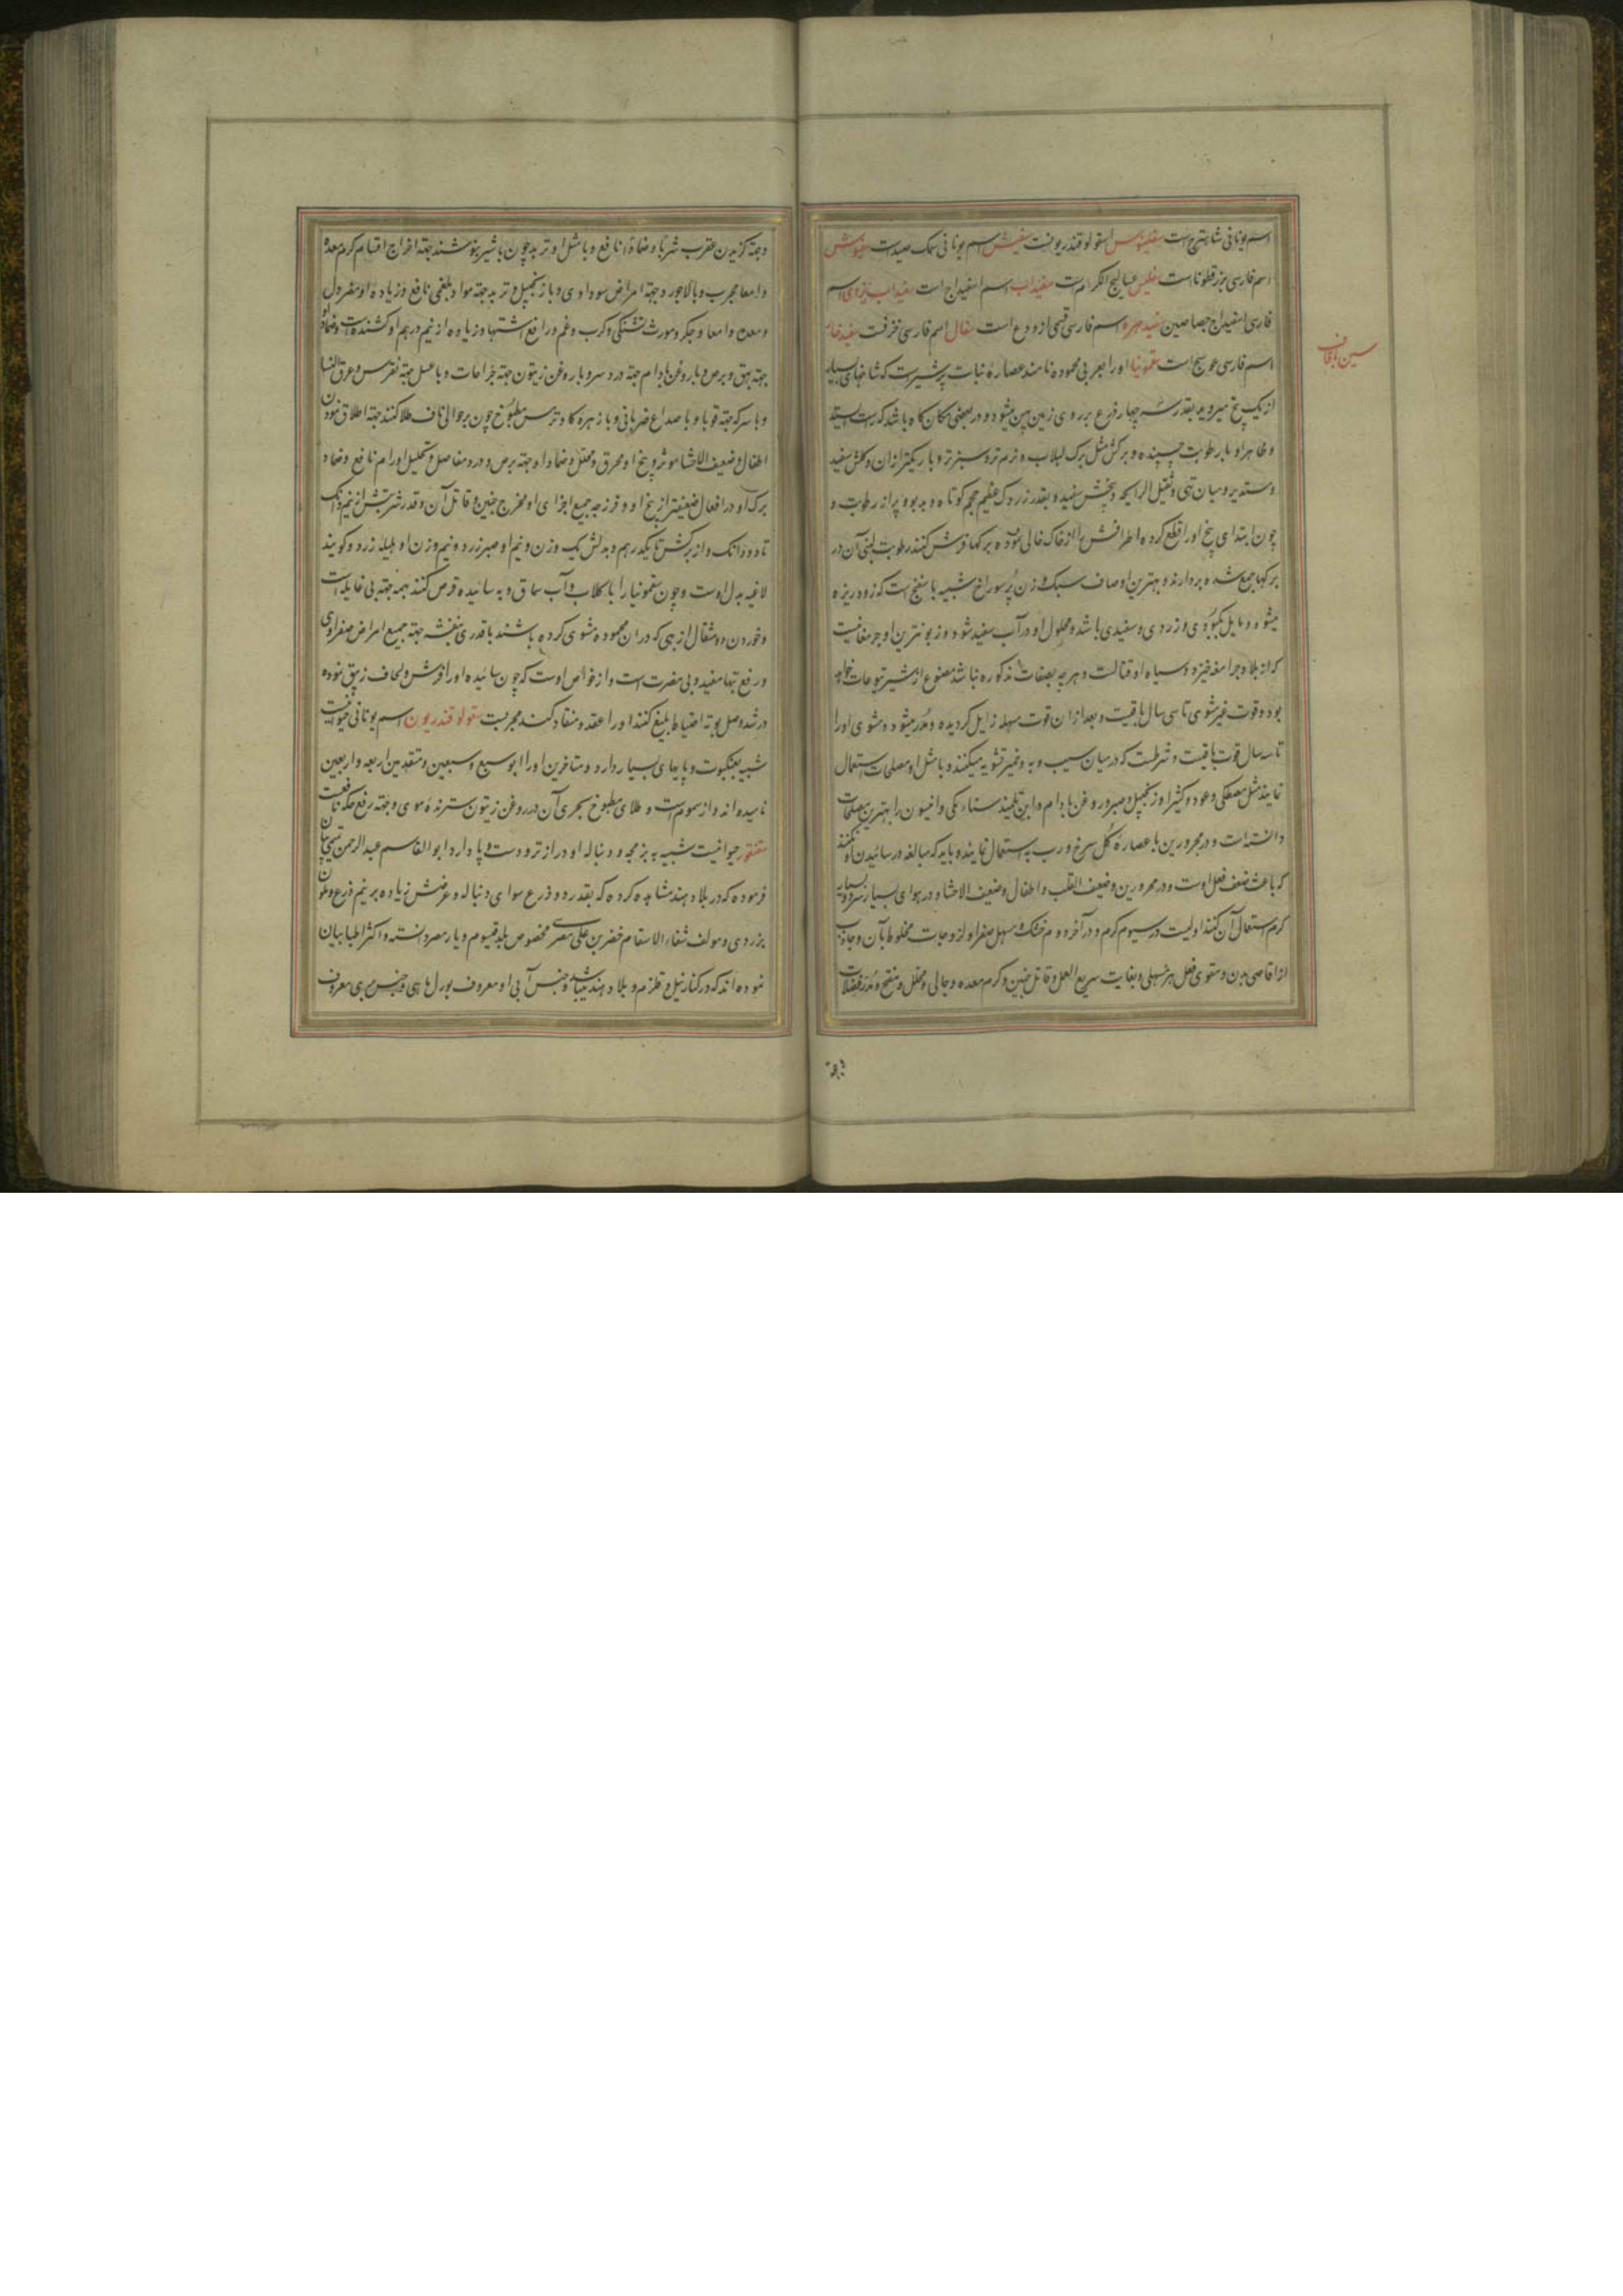 اسم یونانی شاهترج است سفلینوس اسقولوقندریونست سفیش اسم یونانی سمک صیداست سفیوش
اسم فارسی بزرقطوناست سفلیس عسالیج الکرم است سفیداب اسم اسفیداج است سفیداب اسم
فارسی اسفیداج جصاصین سفیدمهره اسم فارسی قسمی از ودع است سفال اسم فارسی خزفست سفیدخار
سین با قاف
اسم فارسی عوسج است سقمونیا او را بعربی محموده نامند عصارهٔ نبات پرشیریست که شاخهای بسیار
از یک بیخ میروید بقدر سه چهار ذرع بر روی زمین پهن میشود و در بعضی مکان گاه باشد که راست ایستد
و ظاهر او با رطوبت چسپنده و برکش مثل برک لبلاب و نرم تر و سبزتر و باریکتر از ان و کلش سفید
و مستدیر و میان تهی و ثقیل الرایحه و بیخش سفید و بقدر زردک عظیم حجم کوتاه و بدبو و پر از رطوبت و
چون ابتدای بیخ او را قطع کرده اطرافش را از خاک خالی نموده برکها فرش کنند رطوبت لبنی آن در
برکها جمع شده بردارند و بهترین اوصاف سبک وزن پرسوراخ شبیه باسفنج است که زود ریزه
میشود و مایل بکبودی و زردی و سفیدی باشد و محلول او در آب سفید شود و زبونترین او جرمقانیست
که از بلاد جرامقه خیزد و سیاه او قتالست و هرچه بصفات مذکوره نباشد مصنوع از شیر یتوعات خواهد
بود و قوت غیر مشوی تا سی سال باقیست و بعد از ان قوت مسهله زایل کردیده و مدر میشود و مشوی او را
تا سه سال قوت باقیست و شرطست که در میان سیب و به و خمیر تشویه میکنند و با مثل او مصلحات استعمال
نمایند مثل مصطکی و عود و کثیرا و زنجبیل و صبر و روغن بادام و ابن تلمیذ سناء مکی و انیسون را بهترین مصلحات
دانسته است و در محرورین با عصارهٔ کل سرخ و رب به استعمال نمایند و باید که مبالغه در سائیدن او نکنند
که باعث ضعف فعل اوست و در محرورین و ضعیف القلب و اطفال و ضعیف الاحشا و در هوای بسیار سرد و بسیار
کرم استعمال آن نکنند اولیست در سیوم کرم و در آخر دوم خشک و مسهل صفرا و لزوجات مخلوط بآن و جاذب
از اقاصی بدن و مقوی فعل هر مسهلی و بغایت سریع العمل و قاتل جنین و کرم معده و جالی و محلل و مفتح و مدر فضلات
و جهة کزیدن عقرب شربا و ضمادا نافع و با مثل او تربد چون باشیر بنوشند جهة اخراج اقسام کرم معده
و امعا مجرب و بالاجورد جهة امراض سوداوی و با زنجبیل و تربد جهة مواد بلغمی نافع و زیاده او مضر دل
و معده و امعا و جکر و مورث تشنکی و کرب و غم و رافع اشتها و زیاده از نیم درهم او کشنده است و ضماد او
جهة بهق و برص و با روغن بادام جهة درد سر و با روغن زیتون جهة جراحات و با عسل جهة نقرس و عرق النسا
و با سرکه جهة قوبا و با صداع ضربانی و با زهره کاو و ترمس مطبوخ چون بر حوالی ناف طلا کنند جهة اطلاق نمودن
اطفال و ضعیف الاحشا موثر و بیخ او محرق و محلل و ضماد او جهة برص و درد مفاصل و تحلیل اورام نافع و ضماد
برک او در افعال ضعیفتر از بیخ او و فرزجه جمیع اجزای او مخرج جنین و قاتل آن و قدر شربتش از نیم دانک
تا دو دانک و از برکش تا یکدرهم و بدلش یک وزن و نیم او صبر زرد و نیم وزن او هلیله زرد و کویند
لاغیه بدل اوست و چون سقمونیا را با کلاب و آب سماق و به سائیده قرص کنند همه جهة بی غایله است
و خوردن دو مثقال از بهی که در ان محموده مشوی کرده باشند با قدری بنفشه جهة جمیع امراض صفراوی
و رفع تبها مفید و بی مضرت است و از خواص اوست که چون سائیده او را فرش و لحاف زیبق نموده
در شد وصل بوته احتیاط بلیغ کنند او را عقد و منقاد کند مجربست سقولوقندریون اسم یونانی حیوانیست
شبیه بعنکبوت و پایهای بسیار دارد و متاخرین او را ابو سبع و سبعین و متقدمین اربعه و اربعین
نامیده اند و از سموم است و طلای مطبوخ بحری آن در روغن زیتون سترنده موی و جهة رفع حکه نافعست
سقنقور حیوانیست شبیه به بزمجه و دنباله او درازتر و دست و پا دارد ابو القاسم عبد الرحمن
فرموده که در بلاد هند مشاهده کرده که بقدر دو ذرع سوای دنباله و عرضش زیاده بر نیم ذرع و ملون
بزردی و مولف شفاء الاسقام خضر بن علی مصری مخصوص بلد فیوم و دیار مصر دانسته و اکثر اطبا بیان
نموده اند که در کنار نیل و قلزم و بلاد هند میباشد و جنس آبی او معروف بورل ماهی و جنس بری معروف